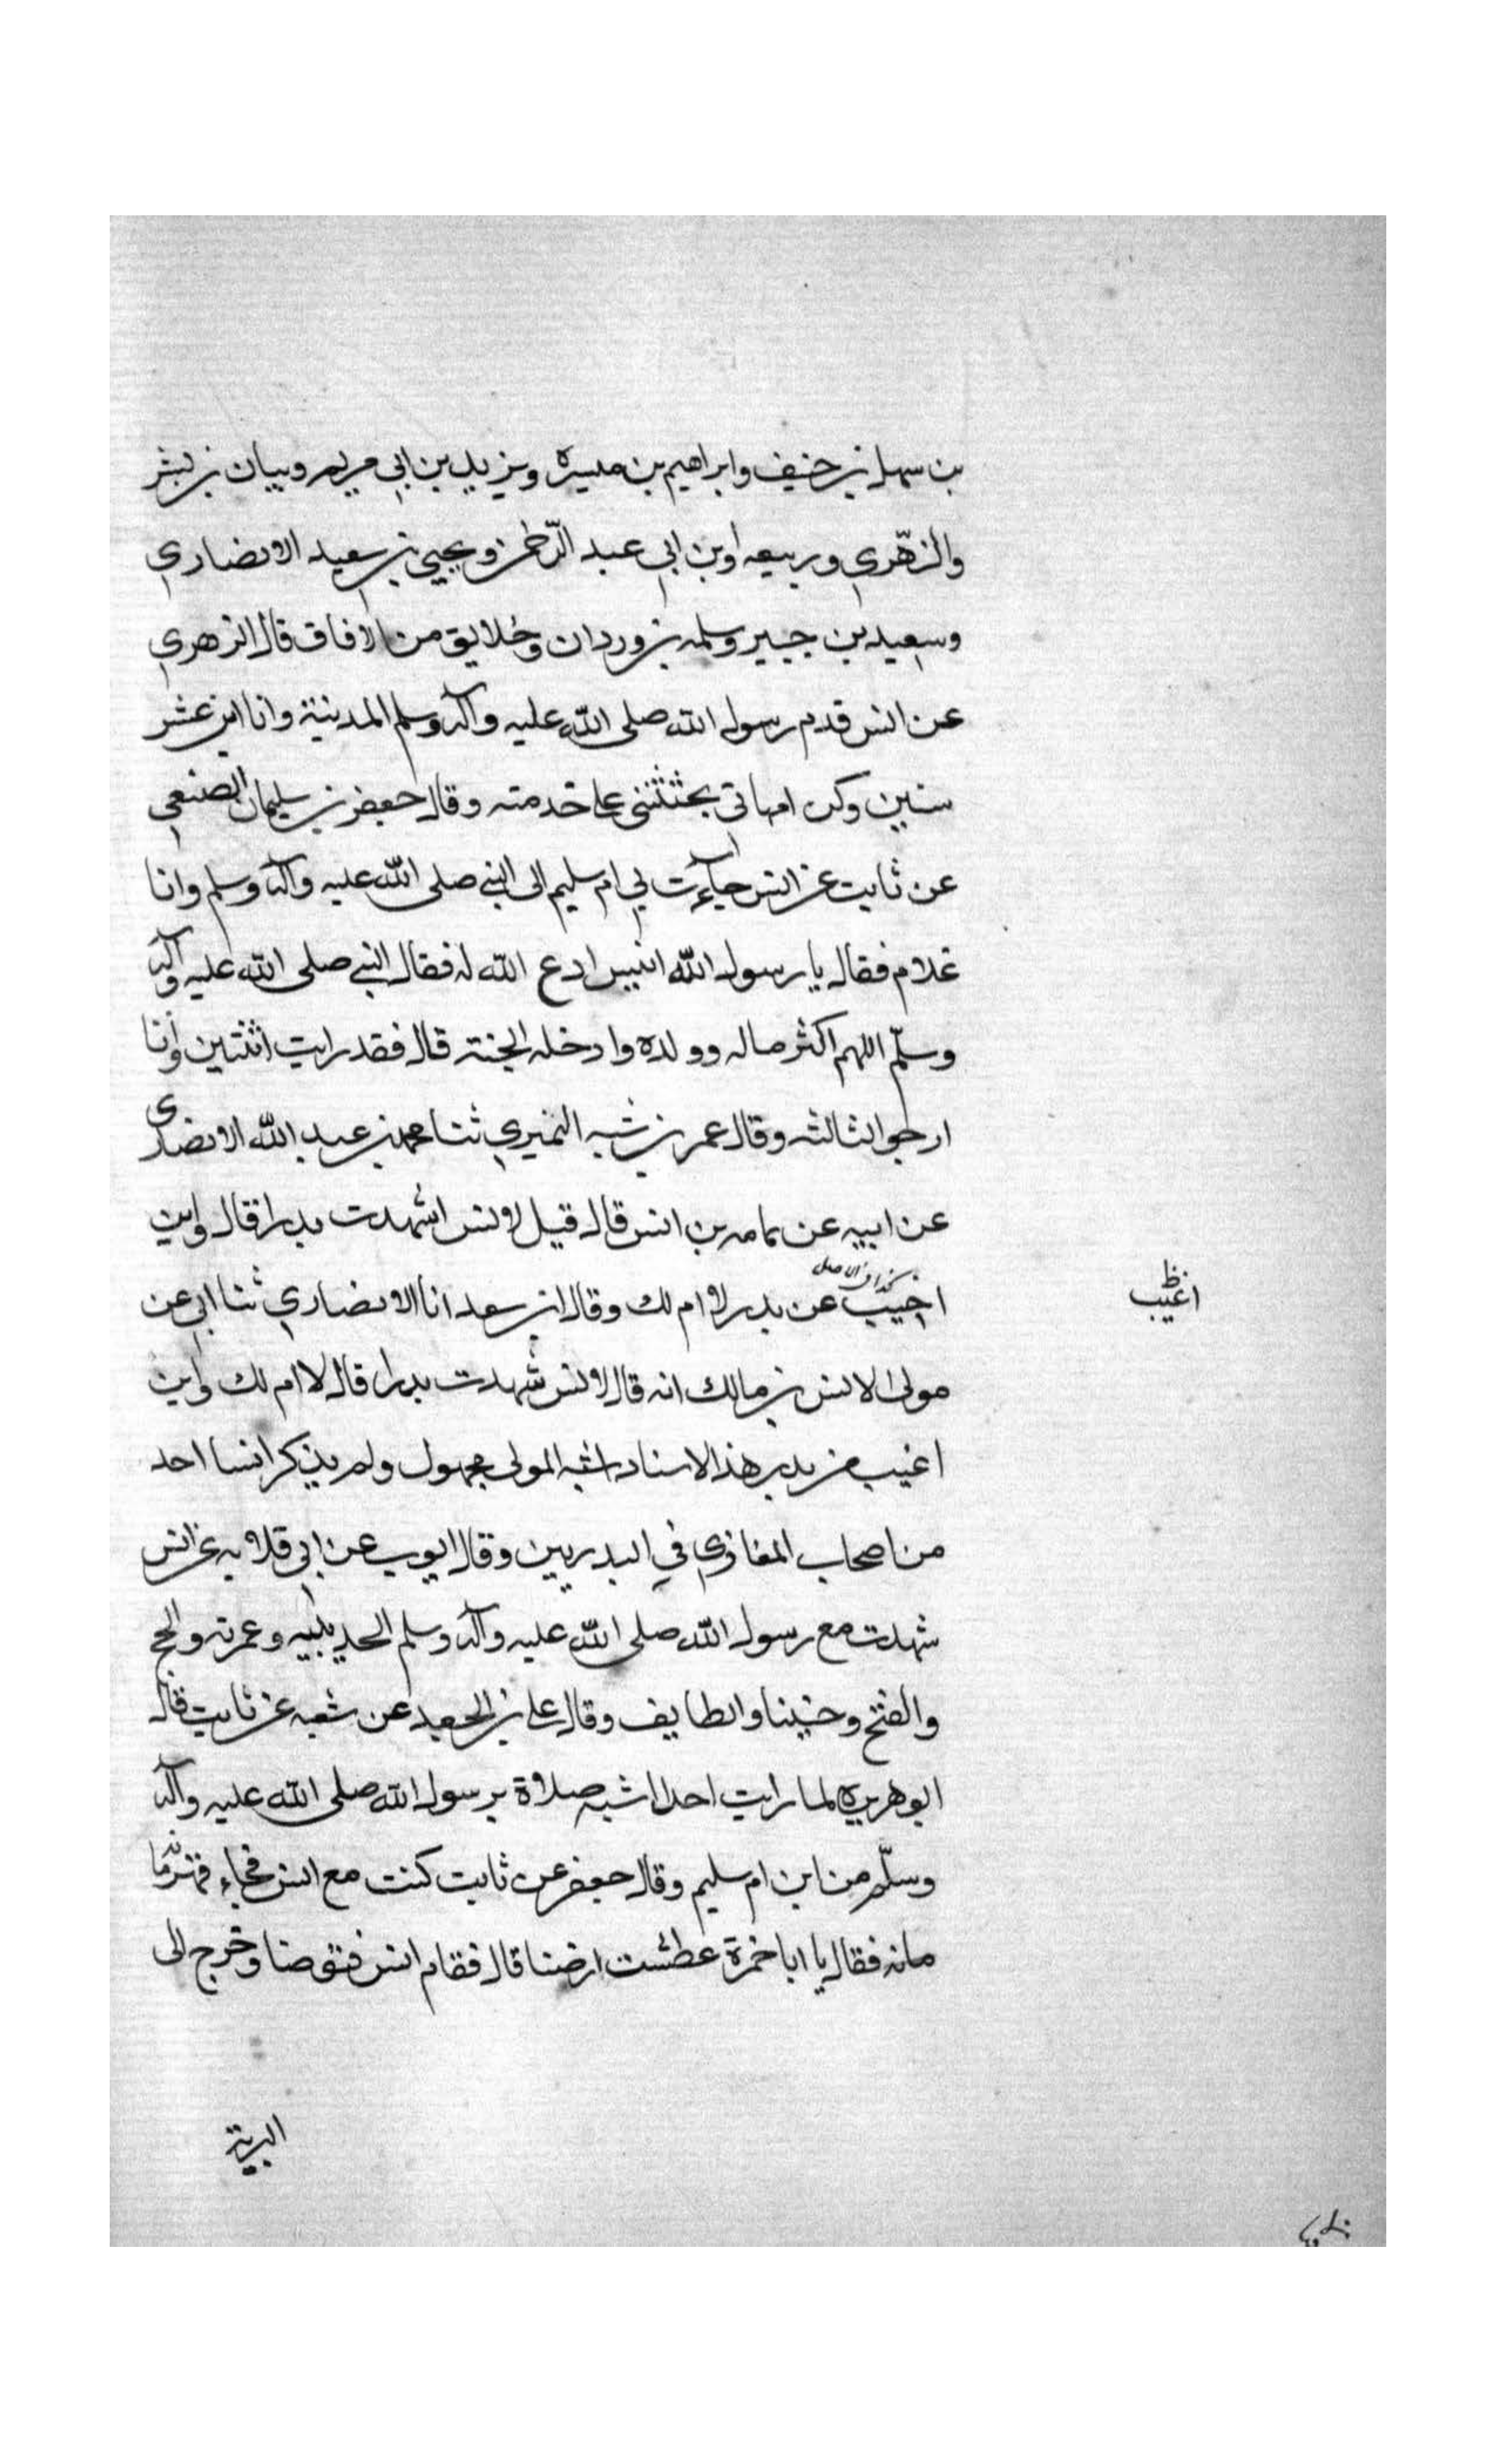 بن سهل بن حنيف وابراهيم بن ميسره ويزيد بن ابي مريم وبيان بن بشر
والزهّري وربيعه اوبن ابي عبد الرّحمن ويحيي بن سعيد الانصاري
وسعيد بن جبير وسلمه بن وردان وخلايق من الافاق قال الزهري
عن انس قدم رسول الله صلى الله عليه وآله وسلم المدينة وانا ابن عشر
سنين وكن امهاتي يحثثنني على خدمته وقال جعفر بن سليمان الضبعي
عن ثابت عن انس جآءت بي ام سليم الى النبي صلى الله عليه وآله وسلم وانا
غلام فقال يا رسول الله انيس ادع الله له فقال النبي صلى الله عليه وآله
وسلّم اللهم اكثر ماله وولده وادخله الجنة قال فقد رايت اثنتين وأنا
ارجو الثالثه وقال عمر بن شبه النميري ثنا محمد بن عبد الله الانصاري
عن ابيه عن ثمامه بن انس قال قيل لانس اشهدت بدرا قال واين
اجيب عن بدر لا ام لك وقال ابن سعد انا الانصاري ثنا ابي عن
كذا في الاصل
اغيب ظ
مولى لانس بن مالك انه قال لانس شهدت بدرا قال لا ام لك واين
اغيب عن بدر هذا الاسناد اشبه المولى مجهول ولم يذكر انسا احد
من اصحاب المغازي في البدريين وقال ايوب عن ابي قلابه عن انس
شهدت مع رسول الله صلى الله عليه وآله وسلم الحديبيه وعمرته والحج
والفتح وحنينا والطايف وقال علي بن الجعيد عن شعبه عن ثابت قال
ابو هريره لما رايت احدا اشبه صلاة برسول الله صلى الله عليه وآله
وسلّم من ابن ام سليم وقال جعفر عن ثابت كنت مع انس فجاء قهرمانه
مانه فقال يا ابا خمزة عطشت ارضنا قال فقام انس فتوضا وخرج الى
البرية